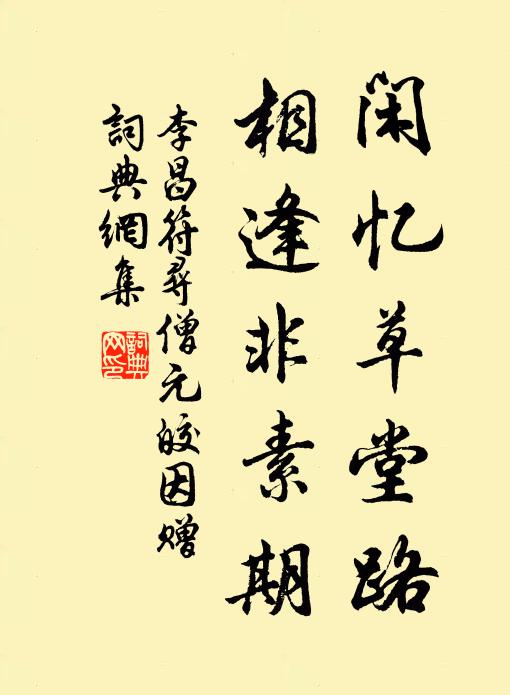 闲忆草堂路
相逢非素期
李昌符尋僧元皎因赠
詞典網集
詞典网印